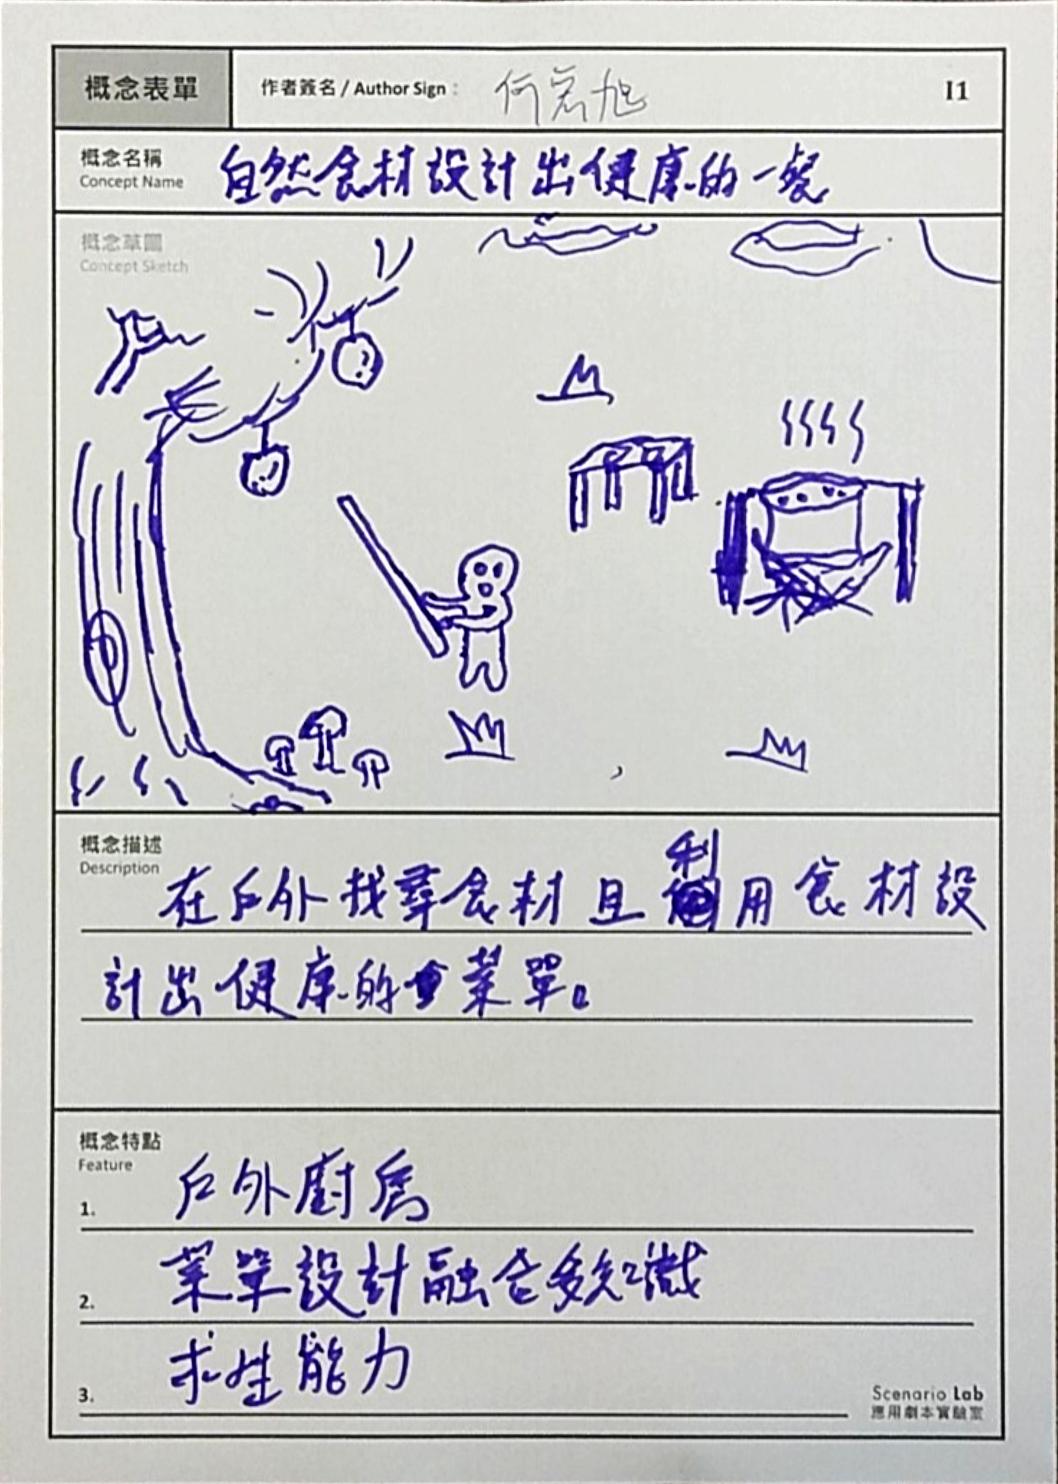 概念表單
作者簽名 / Author Sign : 何宏旭
I1
概念名稱
Concept Name
自然食材設計出健康的一餐
概念草圖
Concept Sketch
概念描述
Description
在戶外找尋食材且利用食材設
計出健康的菜單。
概念特點
Feature
1. 戶外廚房
2. 菜單設計融合知識
3. 求生能力
Scenario Lab
應用劇本實驗室